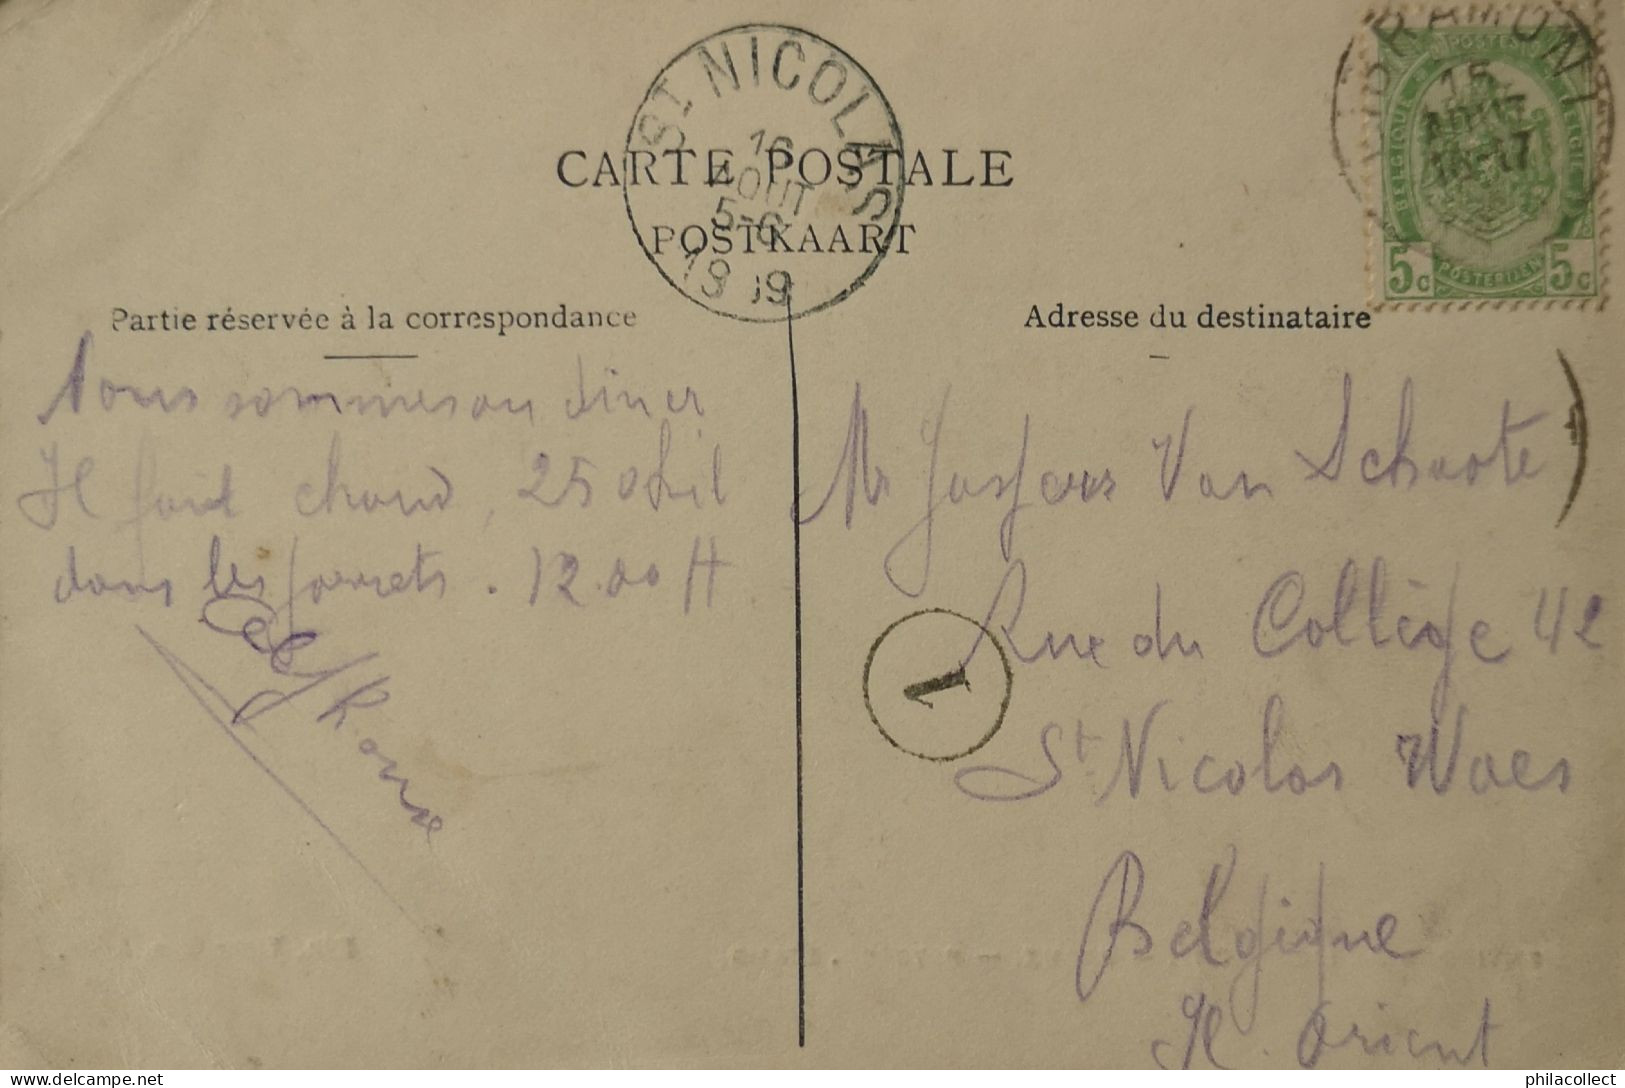 St NICOLAS
16
AOUT
5-6
1909
CARTE POSTALE
POSTKAART
LIBRAMONT
15
AOUT
16-17
POSTES
BELGIQUE
BELGIE
5c POSTERIJEN 5c
Partie réservée à la correspondance
Adresse du destinataire
Nous sommes au diner
Il fait chaud, 25
dans les forrets. 12.00 H
Mr Van Schoote
Rue du Collège 42
1
St Nicolas Waes
Belgique
Fl. Orient
philacollect